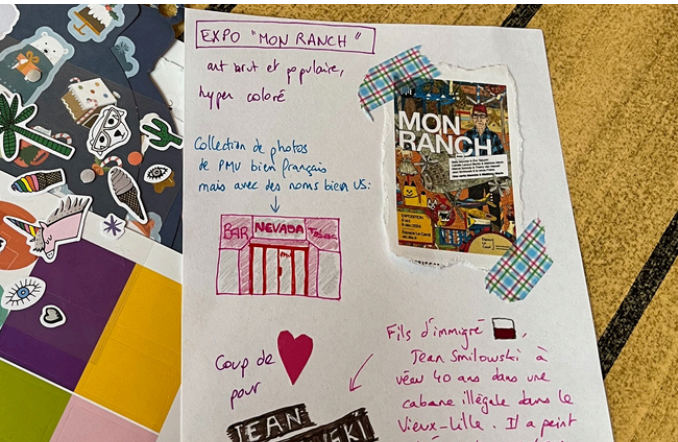 EXPO "MON RANCH"
art brut et populaire,
hyper coloré
MON
RANCH
Collection de photos
de PMU bien français
mais avec des noms bien US:
BAR NEVADA Tabac
PMU
Coup de
pour
JEAN
Fils d'immigré
Jean Smilowski à
vécu 40 ans dans une
cabane illégale dans le
Vieux-Lille. Il a peint